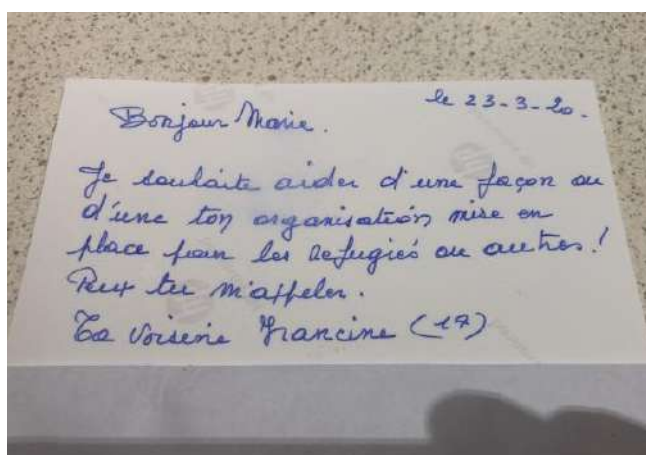 le 23-3-20.
Bonjour Marie.
Je souhaite aider d'une façon ou
d'une ton organisation mise en
place pour les refugiés ou autres!
Peux tu m'appeler.
Ta voisine Francine (17)